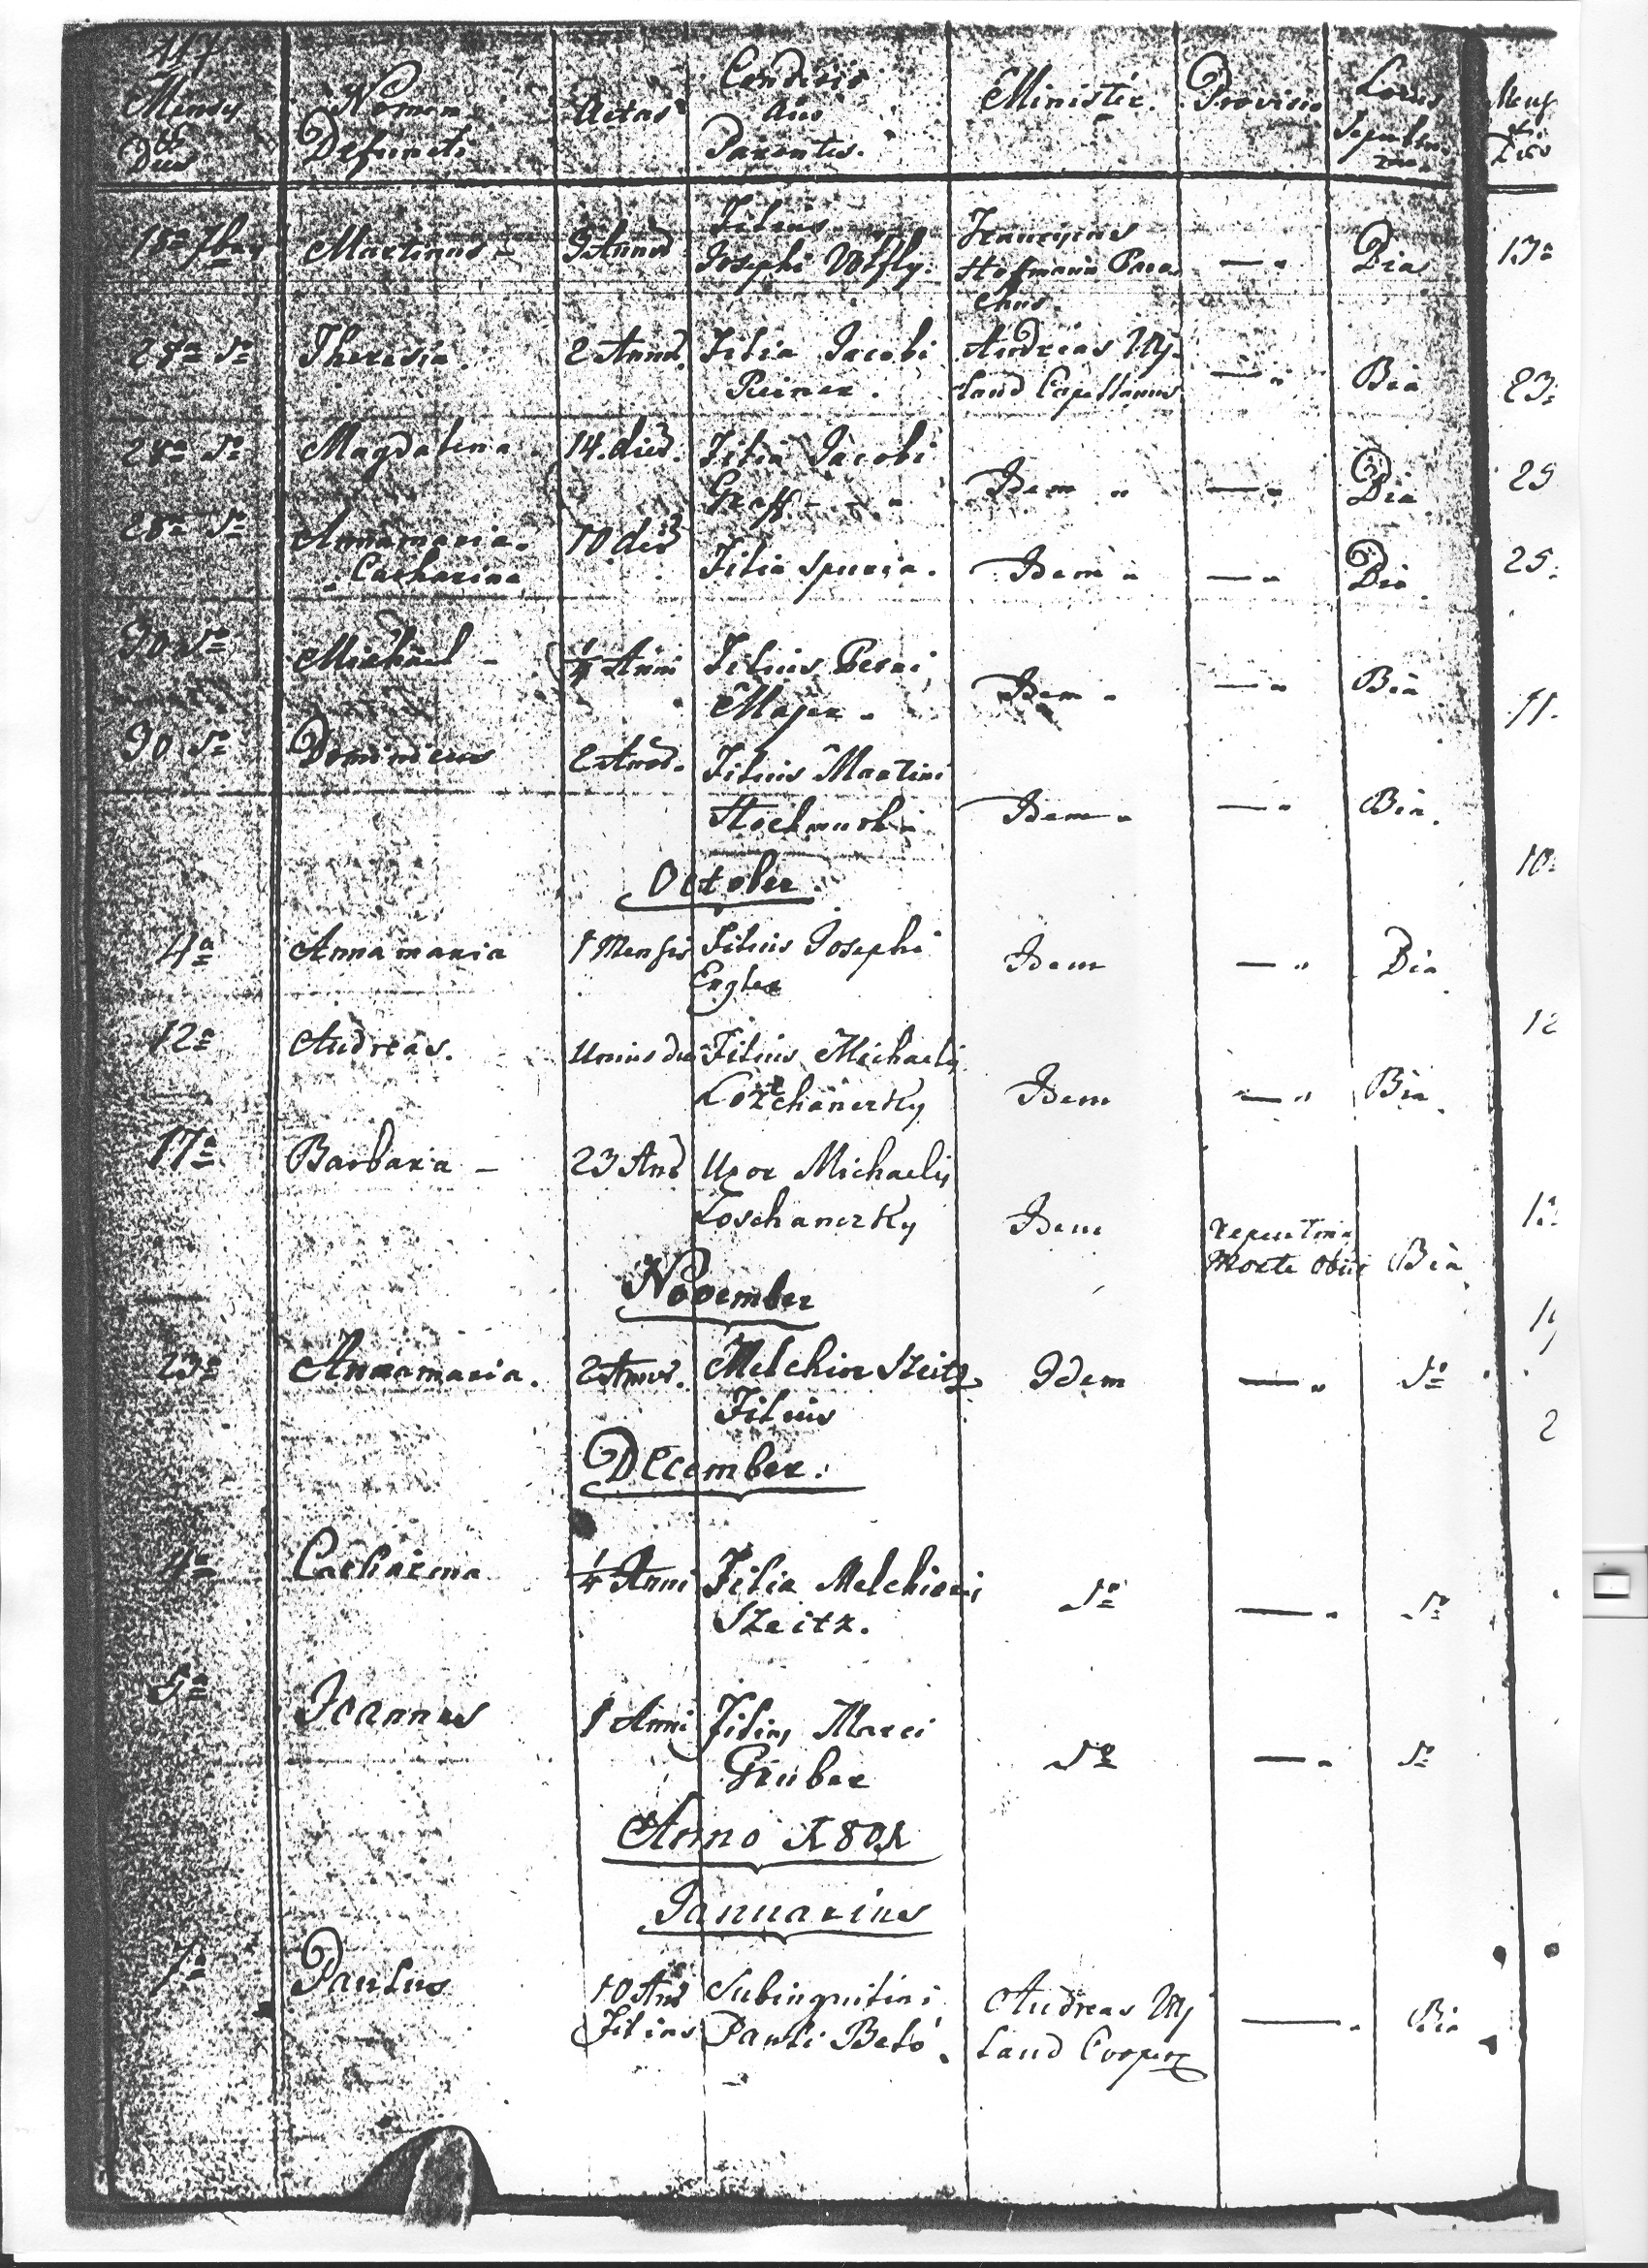 117
Mensis et Dies
Nomen Defuncti
Aetas
Conditio aut Parentes.
Minister.
Provisio
Locus Sepulturae
18ª 7ber Martinus - 9 Annor Filius Josephi Franciscus Hoffmann Parochus. — " Bia
28ª dº Theresia. 2 Annor. Filia Jacobi Reiner. Andreas Uj-land Capellanus — " Bia
28ª dº Magdalena 14. dier. Filia Jacobi Greff - - - Idem " — " Bia
28ª dº Annamaria. Catharina 10 dier Filia spuria. Idem " — " Bia
30 dº Michael - 1/4 Anni Filius Petri Majer - Idem - — " Bia
30 dº Dominicus 2 Annor. Filius Martini Idem - — " Bia.
October.
4ª Annamaria 1 Mensis Filius Josephi Engler Idem — " Bia
12ª Andreas. Unius diei Filius Michaelis Lotchanerky Idem — " Bia
17ª Barbara - 23 Anor Uxor Michaelis Loschanerky Idem repentina Morte obiit Bia
November
23ª Annamaria. 2 Annor. Melchior Szeitz Filius Idem — " dº
December.
4ª Catharina 1/4 Anni Filia Melchiori Szeitz. dº — " dº
5ª Joannes 1 Anni Filius Marci Gruber dº — " dº
Anno 1801
Januarius
7ª Paulus 10 Anor Filius Subinquilini Pauli Beló. Andreas Uj land Cooper — " Bia